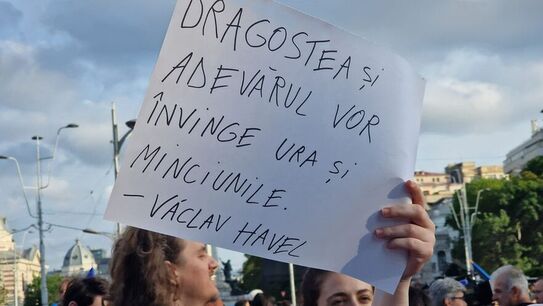 DRAGOSTEA ȘI
ADEVĂRUL VOR
ÎNVINGE URA ȘI
MINCIUNILE.
— VÁCLAV HAVEL